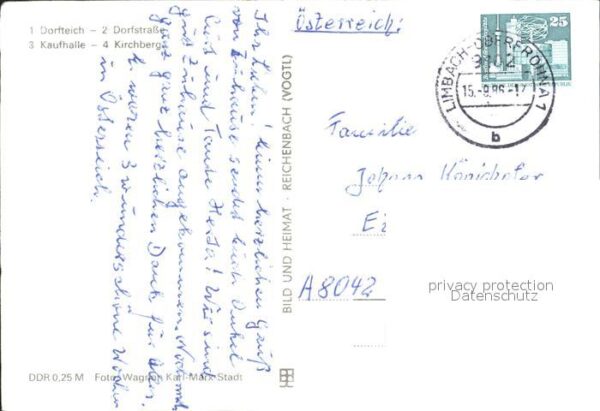 1 Dorfteich – 2 Dorfstraße
3 Kaufhalle – 4 Kirchberg
Ihr Lieben! Einen herzlichen Gruß
von Zuhause sendet Euch Onkel
Curt und Tante Herta! Wir sind
gut Zuhause angekommen. Nochmals
ganz herzlichen Dank für alles.
Es waren 3 wunderschöne Wochen
in Österreich.
DDR 0,25 M Foto: Wagner, Karl-Marx-Stadt
BILD UND HEIMAT · REICHENBACH (VOGTL)
Österreich:
25
LIMBACH-OBERFROHNA 1
9102
15.-9.86.-17
b
Familie
Johann
Ei
A 8042
privacy protection
Datenschutz